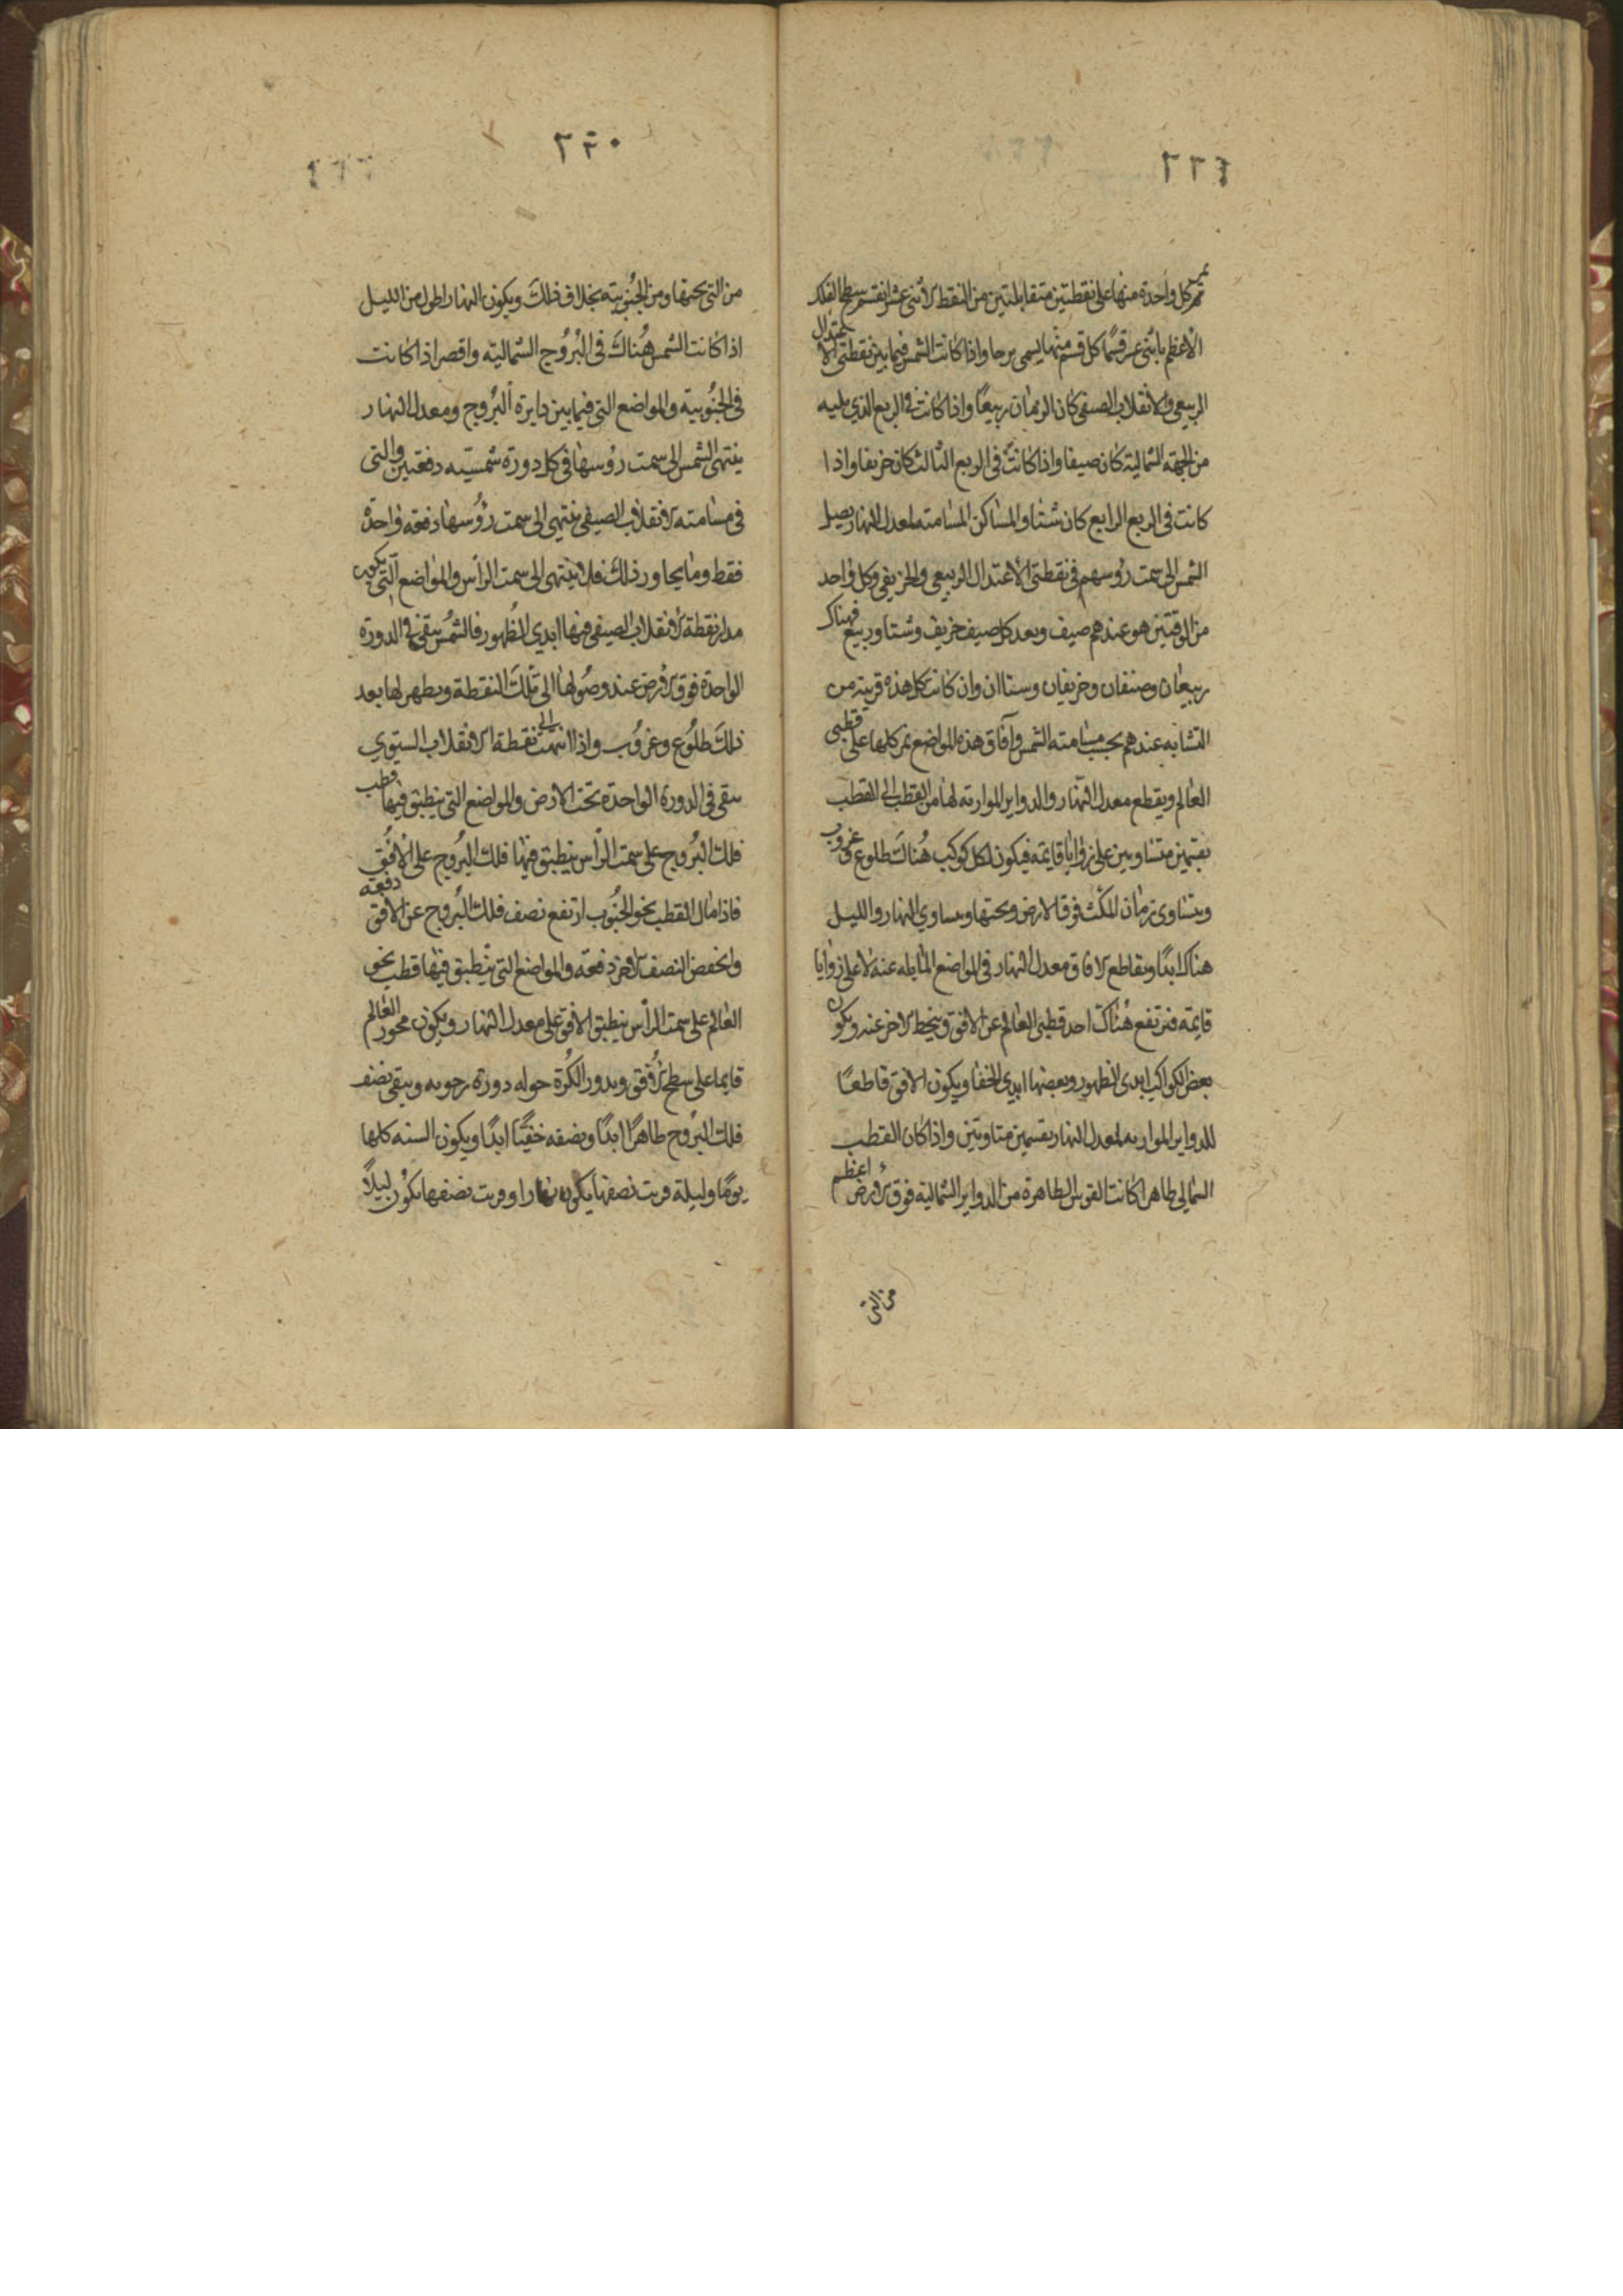 ٢٢٤
تمر كل واحدة منها على نقطتين متقابلتين من النقط الاثنى عشر انقسم سطح الفلك
الاعظم باثنى عشر قسما كل قسم منها يسمى برجا واذا كانت الشمس فيما بين نقطتى الاعتدال
الربيعى والانقلاب الصيفى كان الزمان ربيعا واذا كانت فى الربع الذي يليه
من الجهة الشمالية كان صيفا واذا كانت فى الربع الثالث كان خريفا واذا
كانت فى الربع الرابع كان شتا والمساكن المسامته لمعدل النهار يصل
الشمس الى سمت رؤسهم فى نقطتى الاعتدال الربيعى والخريفى وكل واحد
من الوقتين هو عندهم صيف وبعد كل صيف خريف وشتا وربيع فهناك
ربيعان وصيفان وخريفان وستاان وان كانت كل هذه قريبة من
التشابه عندهم بحسب مسامته الشمس وآفاق هذه المواضع تمر كلها على قطبى
العالم ويقطع معدل النهار والدواير الموازيه لها من القطب الى القطب
بقسمين متساويين على زوايا قايمه فيكون لكل كوكب هناك طلوع وغروب
ويتساوى زمان المكث فوق الارض وتحتها ويساوي النهار والليل
هناك ابدا ويقاطع الافاق معدل النهار فى المواضع المايله عنه لا على زوايا
قايمه فيرتفع هناك احد قطبى العالم عن الافق وينحط الاخر عنه ويكون
بعض الكواكب ابدى الظهور وبعضها ابدي الخفا ويكون الافق قاطعا
للدواير الموازيه لمعدل النهار بقسمين متساويين واذا كان القطب
الشمالى طاهرا كانت القوس الطاهرة من الدواير الشمالية فوق الارض اعظم
من التى
٢٢٥
من التى تحتها ومن الجنوبية بخلاف ذلك ويكون النهار اطول من الليل
اذا كانت الشمس هناك فى البروج الشمالية واقصر اذا كانت
فى الجنوبية والمواضع التى فيما بين دايرة البروج ومعدل النهار
ينتهى الشمس الى سمت رؤسها فى كل دورة شمسيه دفعتين والتى
فى مسامته الانقلاب الصيفى ينتهى الى سمت رؤسها دفعه واحدة
فقط وما يجاور ذلك فلا ينتهى الى سمت الراس والمواضع التى يكون
مدار نقطة الانقلاب الصيفى فيها ابدي الظهور فالشمس يبقى فى الدورة
الواحدة فوق الارض عند وصولها الى تلك النقطة ويطهر لها بعد
ذلك طلوع وغروب واذا انتهت الى نقطة الانقلاب الستوي
يبقى فى الدورة الواحدة تحت الارض والمواضع التى ينطبق فيها قطب
فلك البروج على سمت الراس ينطبق فيها فلك البروج على الافق
فاذا مال القطب نحو الجنوب ارتفع نصف فلك البروج عن الافق دفعة
وانخفض النصف الاخر دفعه والمواضع التى ينطبق فيها قطب نحو
العالم على سمت الراس ينطبق الافق على معدل النهار ويكون محور العالم
قايما على سطح الافق ويدور الكرة حوله دورة رحويه ويبقى نصف
فلك البروح طاهرا ابدا ونصفه خفيّا ابدا ويكون السنه كلها
يوما وليلة قريب نصفها يكون نهارا وقريب نصفها يكون ليلا